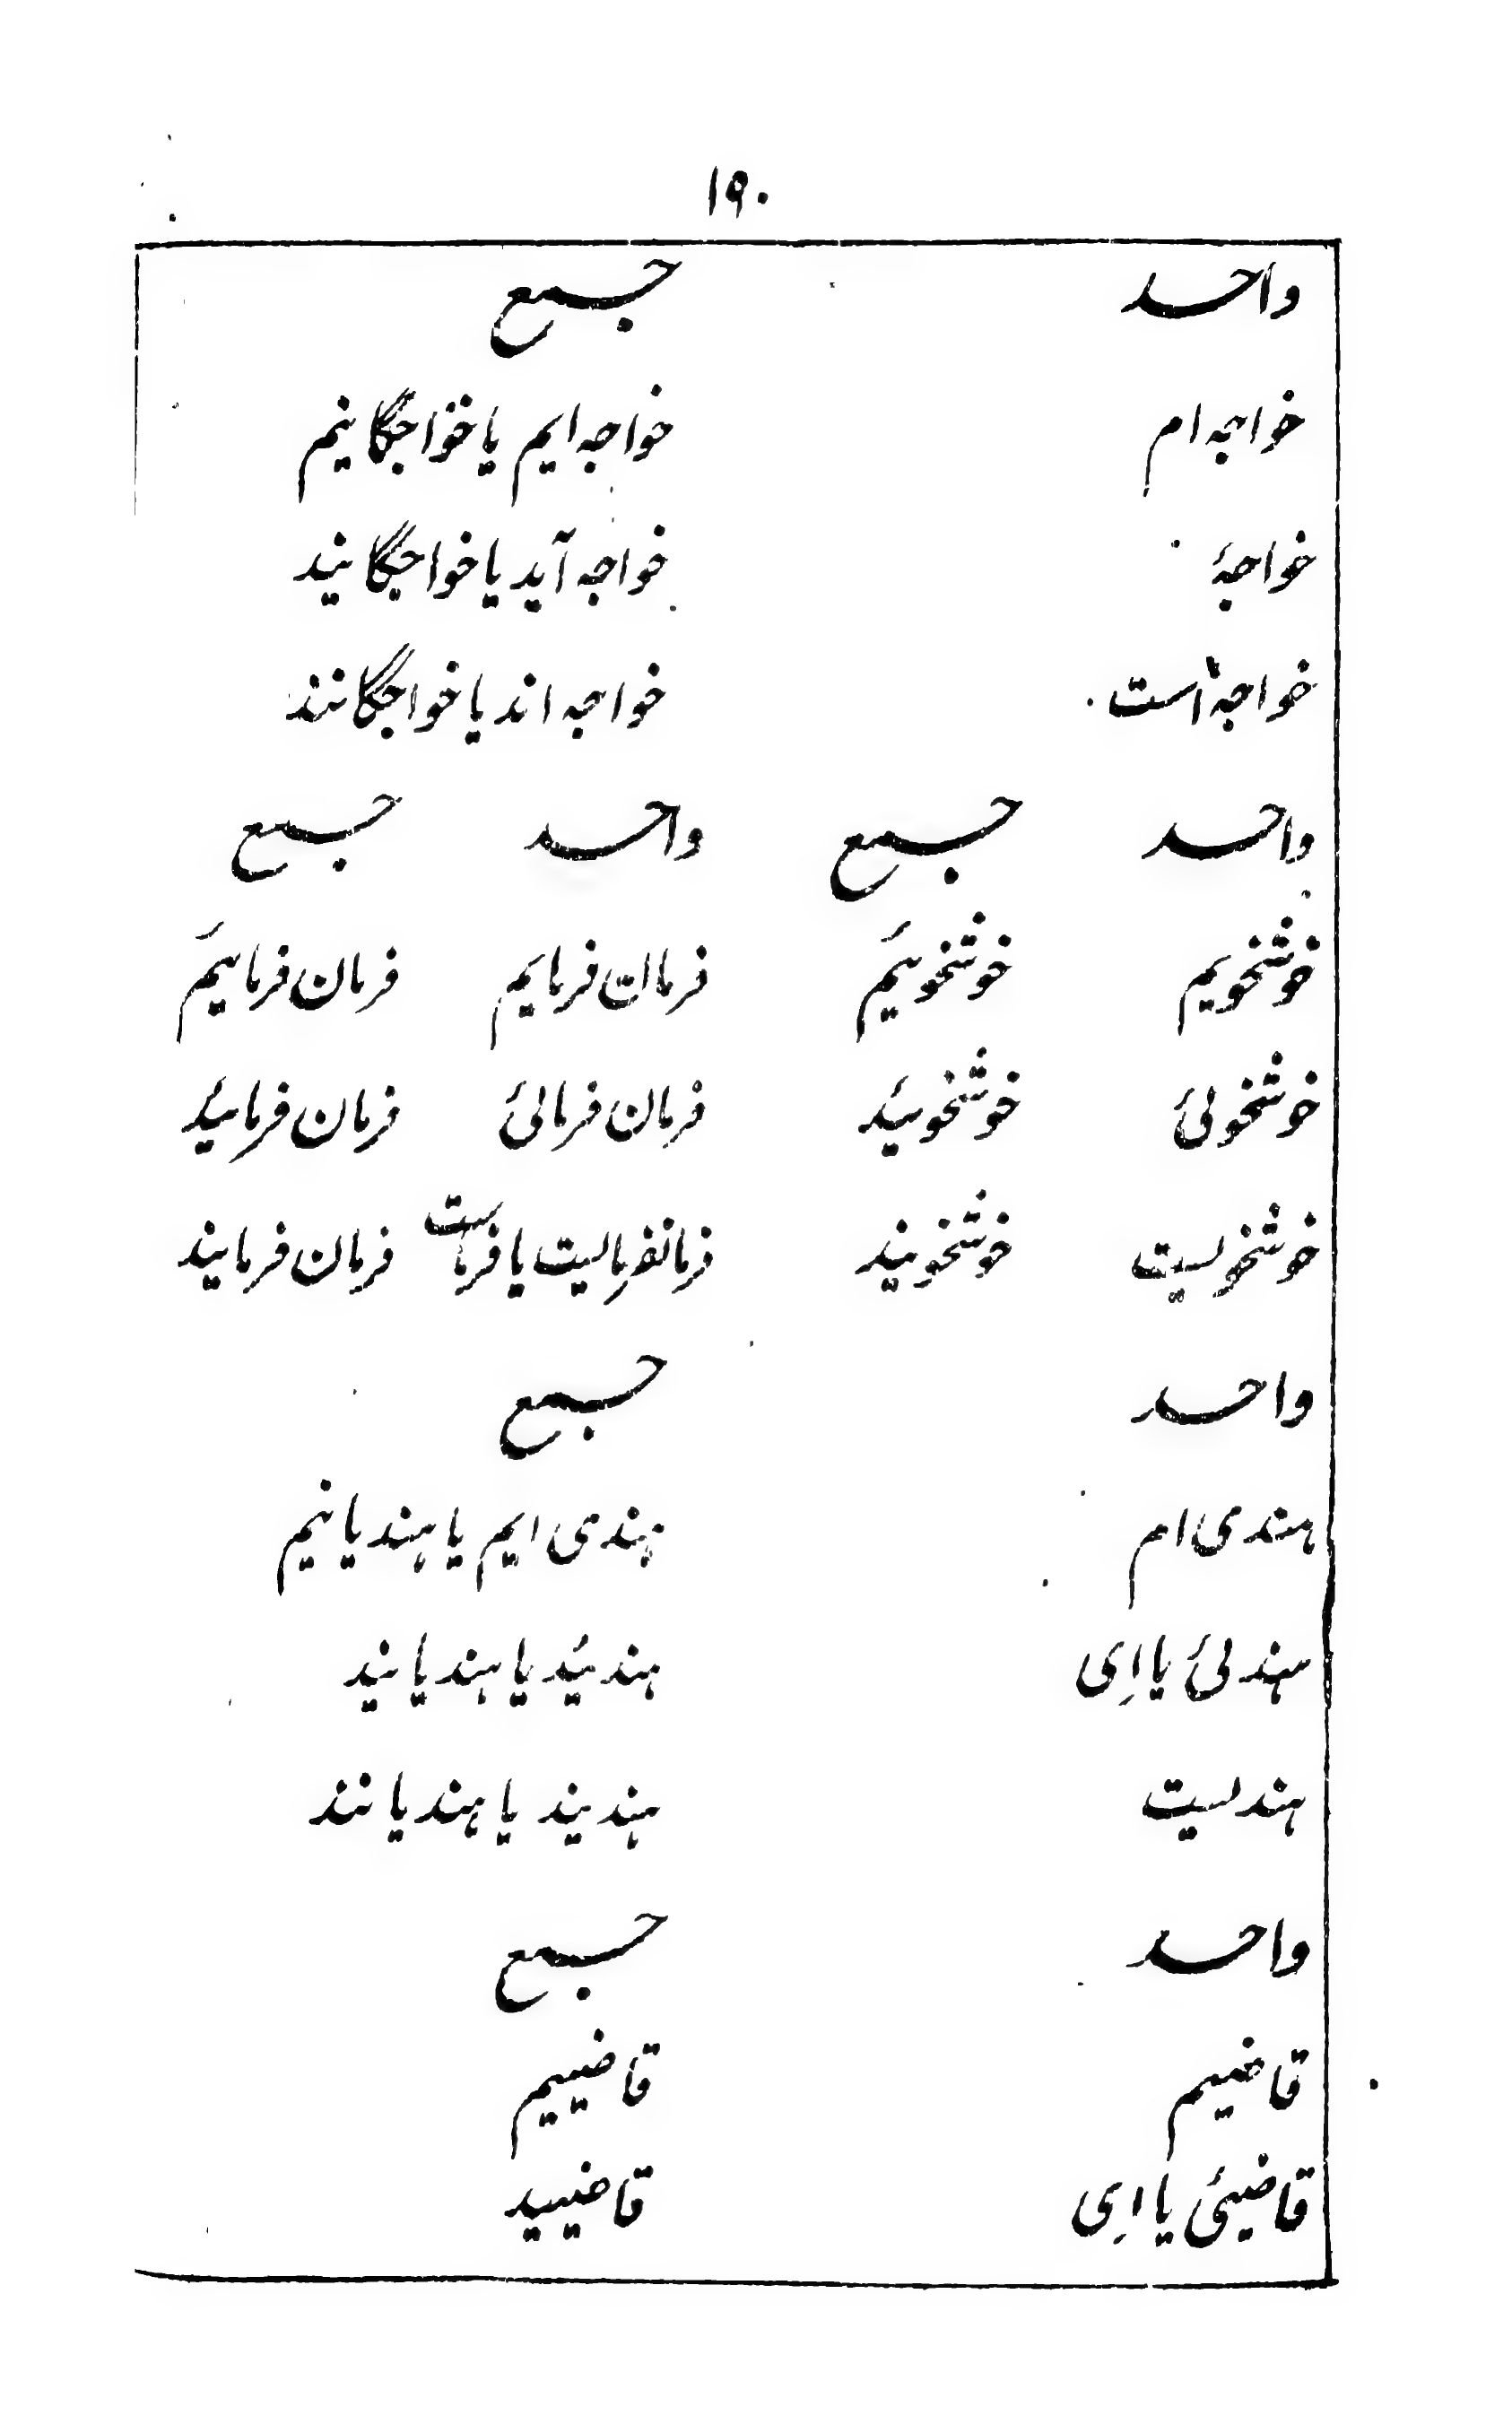 ۱۹۰
واحد جمع
خواجه ام خواجه ایم یا خواجگانیم
خواجهٔ خواجه آید یا خواجگانید
خواجه است خواجه اند یا خواجگانند
واحد جمع واحد جمع
خوشخویم خوشخوئیم فرمان فرمایم فرمان فرمائیم
خوشخوئی خوشخوئید فرمان فرمائی فرمان فرمائید
خوشخویست خوشخویند فرمانفرمایست یا فرماست فرمان فرمایند
واحد جمع
هندی ام هندی ایم یا هندیانیم
هندئی یا اِی هندئید یا هندیانید
هندیست هندیند یا هندیانند
واحد جمع
قاضیم قاضییم
قاضیئی یا اِی قاضیید